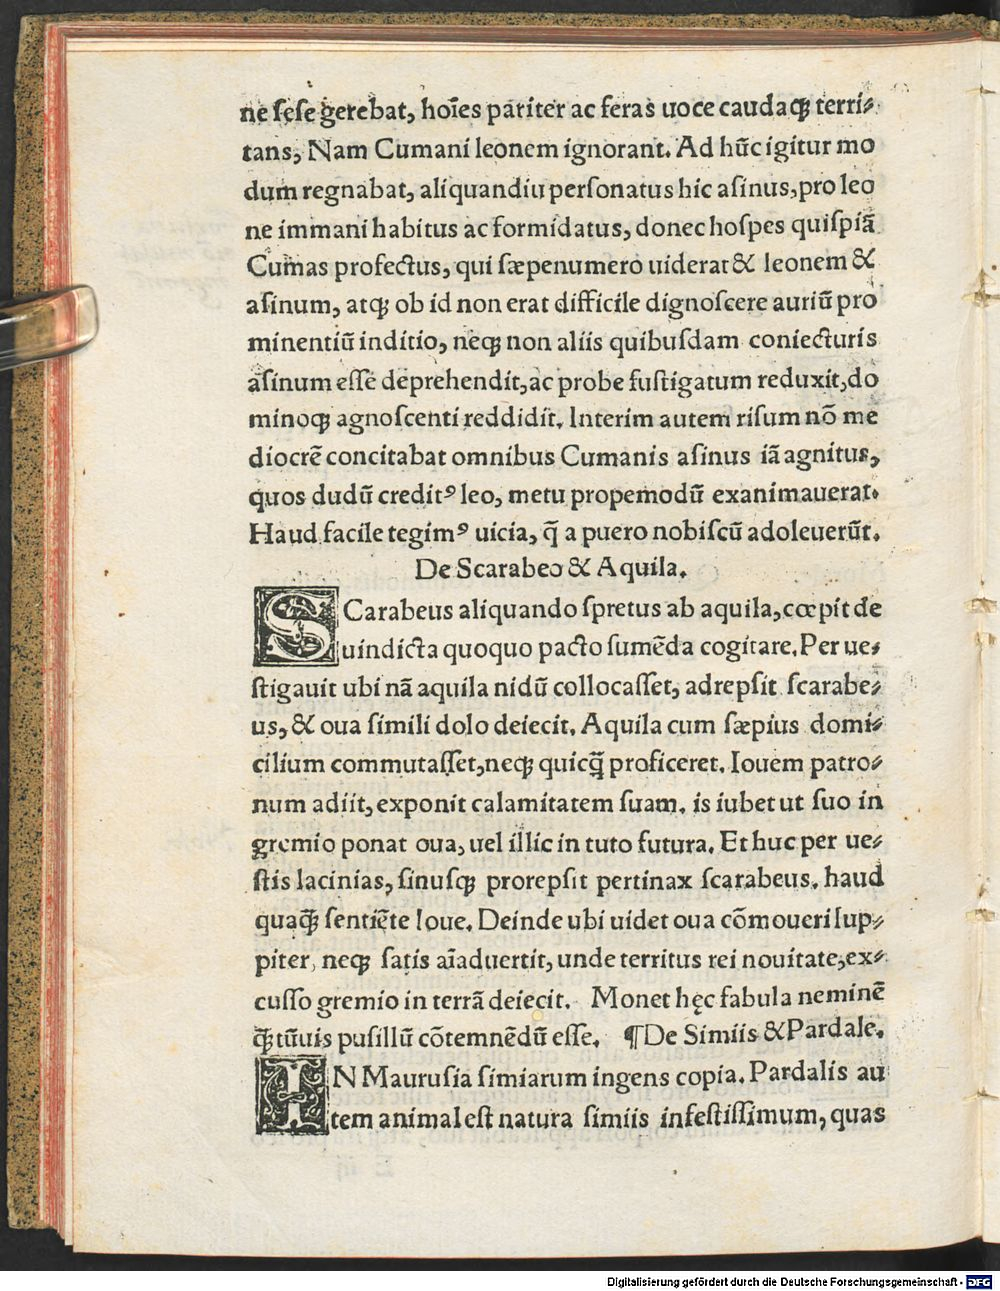 ne ſeſe gerebat, hoı̄es pariter ac feras uoce caudaqꝫ terri⸗
tans, Nam Cumani leonem ignorant. Ad hūc igitur mo
dum regnabat, aliquandiu perſonatus hic aſinus, pro leo
ne immani habitus ac formidatus, donec hoſpes quiſpiā
Cumas profectus, qui ſæpenumero uiderat & leonem &
aſinum, atqꝫ ob id non erat difficile dignoſcere auriū pro
minentiū inditio, neqꝫ non aliis quibuſdam coniecturis
aſinum eſſe deprehendit, ac probe fuſtigatum reduxit, do
minoqꝫ agnoſcenti reddidit. Interim autem riſum nō me
diocrē concitabat omnibus Cumanis aſinus iā agnitus,
quos dudū creditꝰ leo, metu propemodū exanimauerat.
Haud facile tegimꝰ uicia, q̄ a puero nobiſcū adoleuerūt.
De Scarabeo & Aquila.
SCarabeus aliquando ſpretus ab aquila, cœpit de
uindicta quoquo pacto ſumēda cogitare. Per ue⸗
ſtigauit ubi nā aquila nidū collocaſſet, adrepſit ſcarabe⸗
us, & oua ſimili dolo deiecit. Aquila cum ſæpius domi⸗
cilium commutaſſet, neqꝫ quicꝗ̄ proficeret. Iouem patro⸗
num adiit, exponit calamitatem ſuam. is iubet ut ſuo in
gremio ponat oua, uel illic in tuto futura. Et huc per ue⸗
ſtis lacinias, ſinuſqꝫ prorepſit pertinax ſcarabeus. haud
quaꝗ̄ ſentiēte Ioue. Deinde ubi uidet oua cōmoueri Iup⸗
piter, neqꝫ ſatis aı̄aduertit, unde territus rei nouitate, ex⸗
cuſſo gremio in terrā deiecit. Monet hęc fabula neminē
ꝗ̄tūuis puſillū cōtemnēdū eſſe. ¶De Simiis & Pardale.
IN Mauruſia ſimiarum ingens copia. Pardalis au
tem animal eſt natura ſimiis infeſtiſſimum, quas
Digitalisierung gefördert durch die Deutsche Forschungsgemeinschaft - DFG